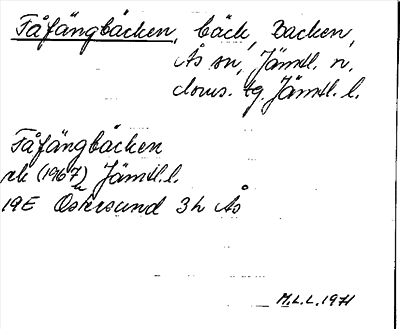 Fåfängbäcken, bäck, Backen,
Ås sn, Jämtl. n.
doms. tg. Jämtl. l.
Fåfängbäcken
ek (1967) Jämtl. l.
19E Östersund 3h Ås
M.L.L. 1971